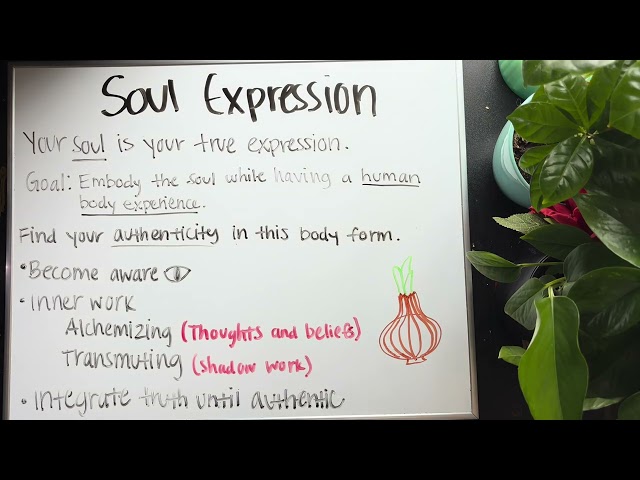 Soul Expression
Your soul is your true expression.
Goal: Embody the soul while having a human
body experience.
Find your authenticity in this body form.
• Become aware
• Inner work
Alchemizing (Thoughts and beliefs)
Transmuting (shadow work)
• Integrate truth until authentic